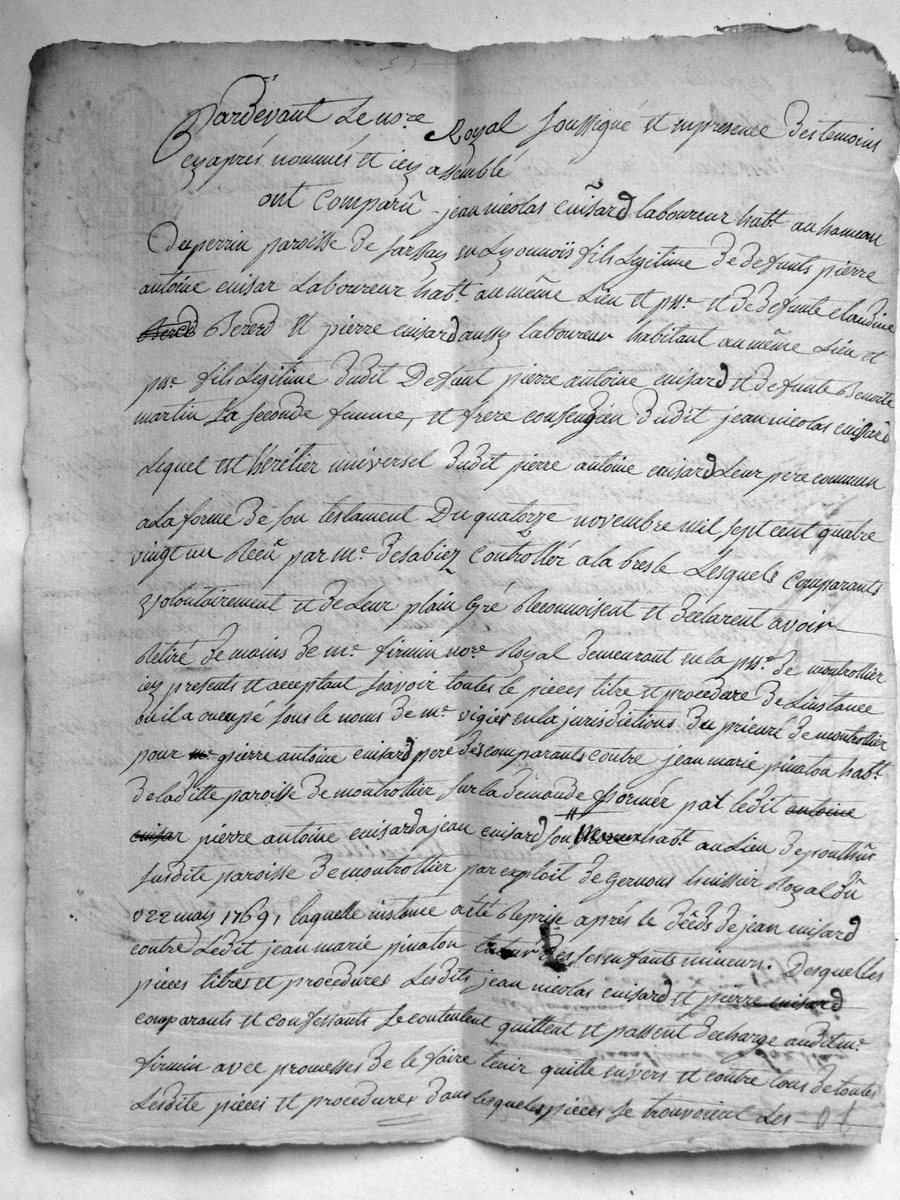 Pardevant Le no.re Royal soussigné et en presence des temoins
cy aprés nommés et icy assemblé
ont comparû jean nicolas cuisard laboureur hab.t au hameau
Du perrin paroisse de sarsay en Lyonnois fils Legitime de defunts pierre
antoine cuisar Laboureur hab.t au même Lieu et p.sse et de defunte claudine
Bererd Et pierre cuisard aussy laboureur habitant au même Lieu et
p.sse fils Legitime dudit Deffunt pierre antoine cuisard et defunte Benoite
martin sa seconde femme, et frere consengin dudit jean nicolas cuisard
Lequel est heretier universel dudit pierre antoine cuisard Leur pere commun
a La forme de son testament Du quatorze novembre mil sept cent quatre
vingt un Recû par m.e Desabiez Controllé a la bresle Lesquels Comparants
volontairement et de Leur plain Gré Reconnoisent et declarent avoir
Retiré de mains de m.e firmin no.re Royal demeurant en la p.sse de montrottier
icy presents et acceptant sçavoir toutes le pieces titre et procedure de Linstance
ou il a occupé sous le noms de m.e vigier en la jurisdictions du prieuré de montrottier
pour pierre antoine cuisard pere des comparants contre jean marie pinaton hab.t
de laditte paroisse de montrottier sur la demande formér pat ledit antoine
cuisar pierre antoine cuisard a jean cuisard son hab.t au Lieu de
susdite paroisse de montrottier par exploit de Gervous huissier Royal dû
v22 may 1769, laquelle instance a été Reprise aprés le dêcds de jean cuisard
contre Ledit jean marie pinaton tuteur des ses enfants mineurs. Desquelles
pieces titres et procedures Lesdits jean nicolas cuisard et pierre cuisard
comparants et confessants se contentent quittent et passent decharge audit m.e
firmin avec promesses de le faire tenir quitte envers et contre tous de toutes
Lesdite pieces et procedures dans lesquels pieces se trouvoient Les